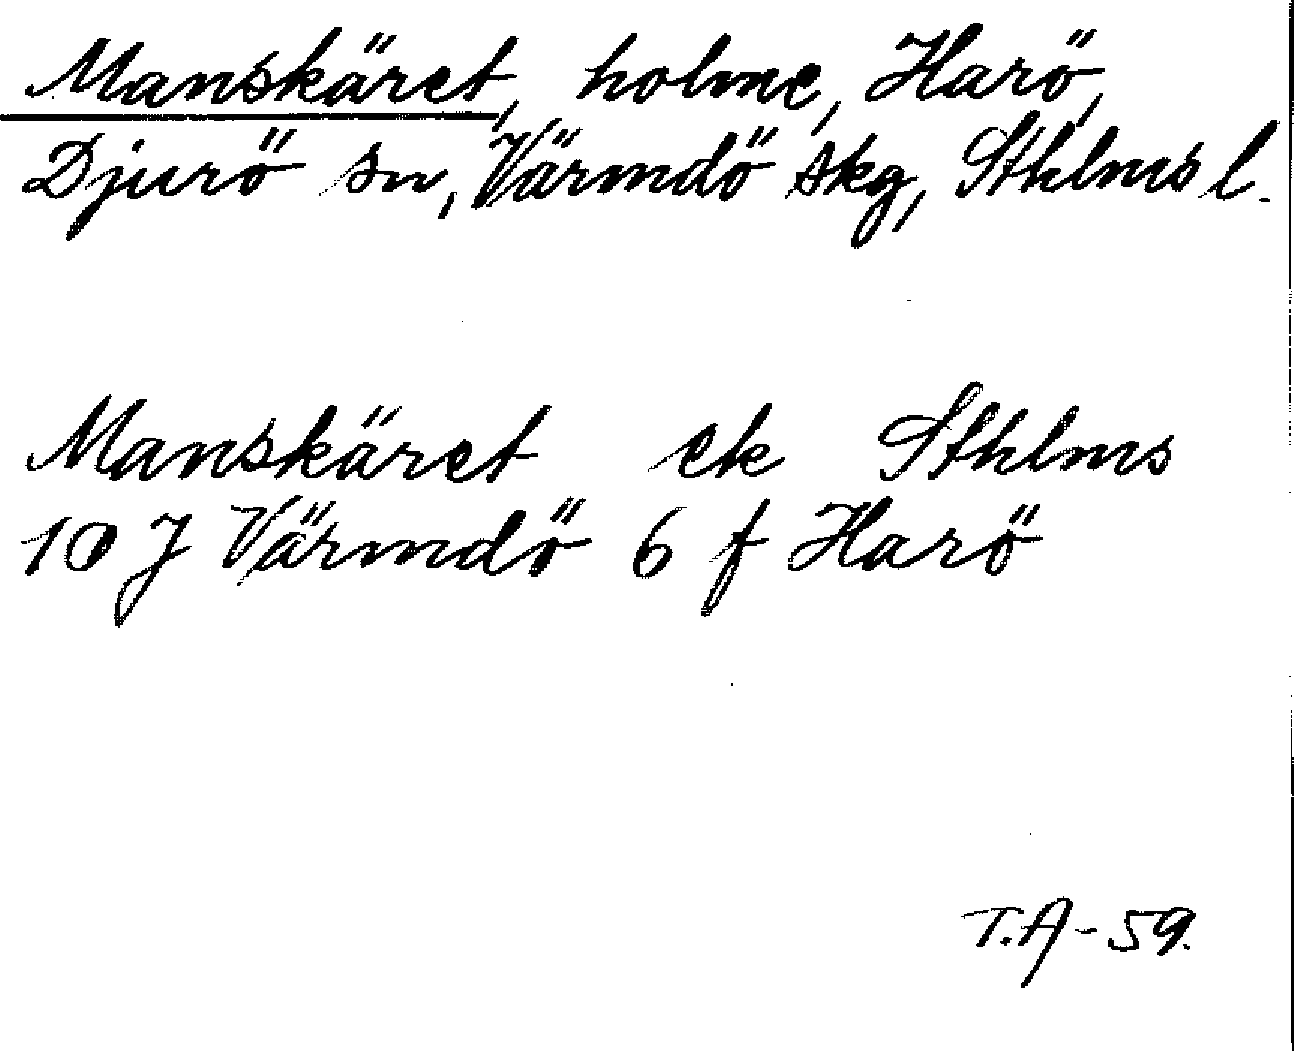 Manskäret, holme, Harö,
Djurö sn, Värmdö skg, Sthlms l.
Manskäret ek Sthlms
10 J Värmdö 6 f Harö
T.A-59.